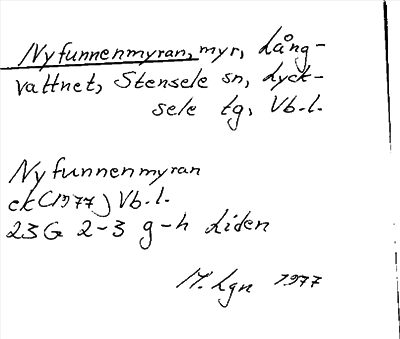 Nyfunnenmyran, myr, Lång-
vattnet, Stensele sn, Lyck-
sele tg, Vb.l.
Nyfunnenmyran
ek(1977) Vb.l.
23G 2-3 g-h Liden
M. Lgn 1977